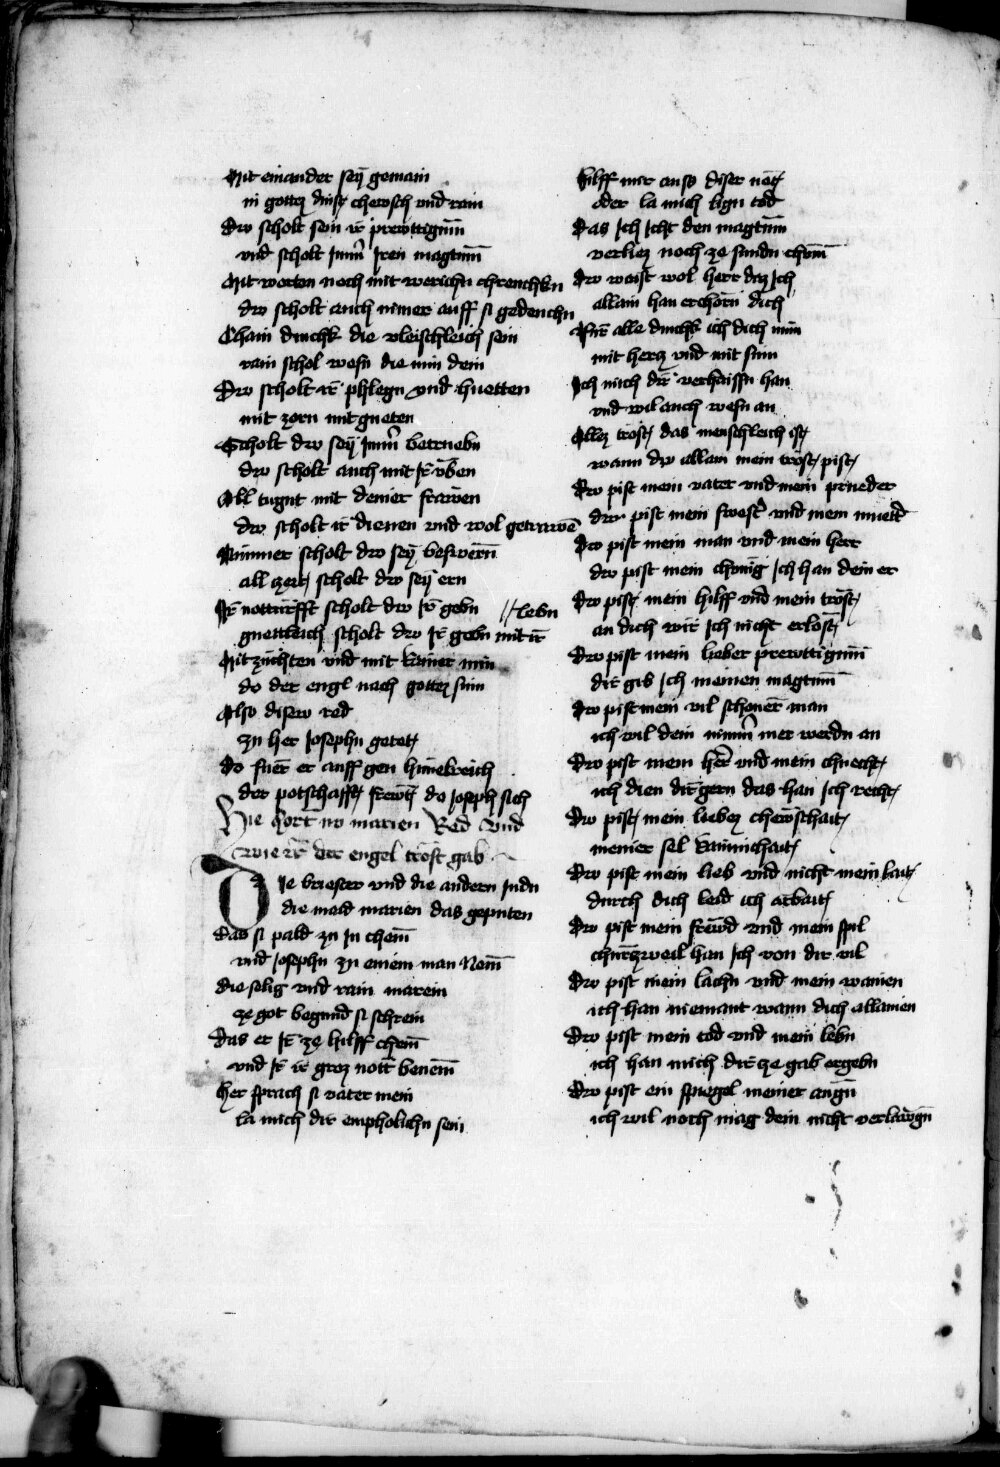 Mit einander seӱ gemain
in gottez dinst chewsch vnd rain
Dw scholt sein ir̄ prewttigum̄
vnd scholt Im̄m̄ Iren magtum̄
Mit worten noch mit werichn chrenchkn
dw scholt auch nimer auff si gedenchn
Chain dinchk die vleischleich sein
rain schol wesn die min dein
Dw scholt ir̄ phlegn vnd huetten
mit zorn mit gueten
Scholt dw seӱ Im̄m̄ betruebn
dw scholt auch mit Ir̄ vben
All tugnt mit deiner frawen
dw scholt ir̄ dienen vnd wol getrawē
Nimmer scholt dw seӱ beswern̄
all zeit scholt dw seӱ ern
Ir̄ notturfft scholt dw Ir̄ gebn
guettleich scholt dw Ir̄ gebn mit ir̄ // lebn
Mit züchten vnd mit kainer min
do der engl nach gottez sinn
Also disew red
zu her Josephn getet
do fuer er auff gen himelreich
der potschafft frewt do Joseph sich
Hie hort nw marien Red vnd
wie ir̄ der engel trost gab
Die briester vnd die andern Judn
die maid marien das geputen
das si pald zu In chem̄
vnd Josephn zu einem man Nem̄
die selig vnd rain marein
ze got begund si schrein
das er Ir̄ ze hilff chem̄
vnd Ir̄ ir groz nott benem̄
Her sprach si vater mein
la mich dir empholichn sein
hilff mir auss diser not
oder la mich lign tod
das Ich Icht den magtum̄
verliez noch ze sundn chöm̄
dw waist wol herr daz Ich
allain han erchorn dich
Für alle dinchk ich dich min
mit hercz vnd mit sinn
Ich mich dir̄ verhaissn han
vnd wil auch wesn an
Allez trost das menschleich ist
wann dw allain mein trost pist
Dw pist mein vater vnd mein prueder
dw pist mein swest̄ vnd mein muetter
Dw pist mein man vnd mein herr
dw pist mein chönig Ich han dein er
Dw pist mein hilff vnd mein trost
an dich wir Ich nicht erlost
Dw pist mein lieber prewttigum̄
dir gib Ich meinen magtum̄
Dw pist mein vil schoner man
ich wil dein nimm̄ mer werdn an
Dw pist mein her̄ vnd mein chnecht
ich dien dir gern das han Ich recht
Dw pist mein liebez chewschait
meiner sel rainichait
Dw pist mein lieb vnd nicht mein lait
durch dich leid ich arbait
Dw pist mein frewd vnd mein spil
churczweil han Ich von dir vil
Dw pist mein lachn vnd mein wainen
ich han niemant wann dich allainen
Dw pist mein tod vnd mein lebn
ich han mich dir ze gab ergebn
Dw pist ein spiegel meiner augn̄
ich wil noch mag dein nicht verlawgn̄